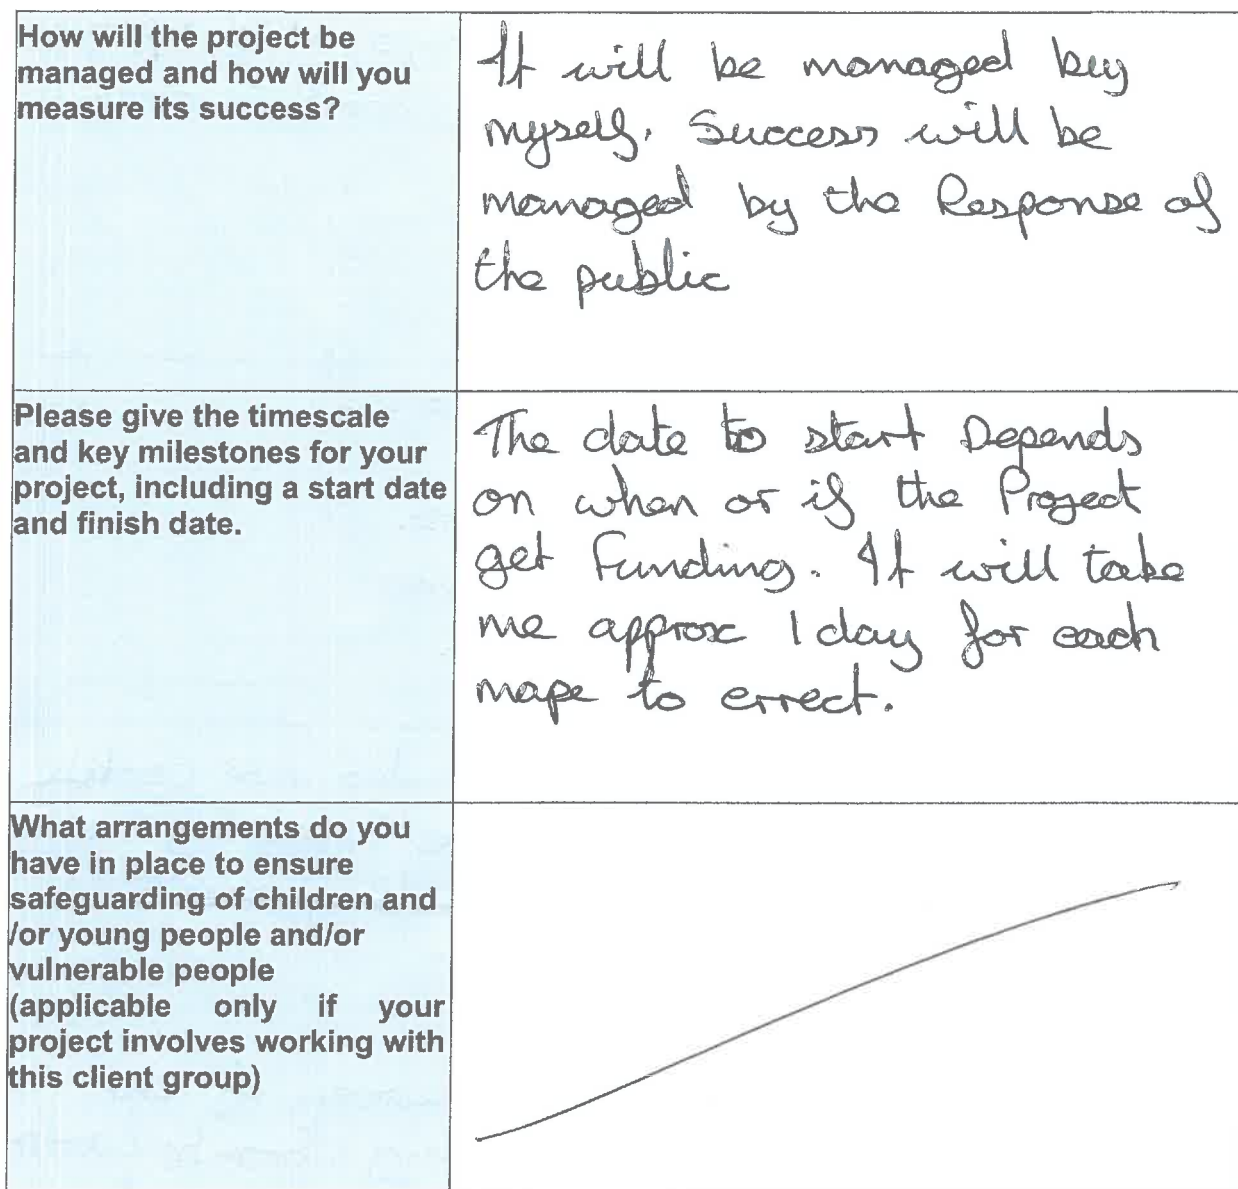 How will the project be
managed and how will you
measure its success?
It will be managed by
myself. Success will be
managed by the Response of
the public
Please give the timescale
and key milestones for your
project, including a start date
and finish date.
The date to start Depends
on when or if the Project
get Funding. It will take
me approx 1 day for each
mape to errect.
What arrangements do you
have in place to ensure
safeguarding of children and
/or young people and/or
vulnerable people
(applicable only if your
project involves working with
this client group)